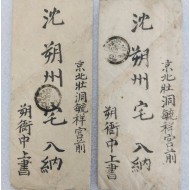 京北壯洞毓祥宮前
沈朔州宅入納
朔衙中上書
京北壯洞毓祥宮前
沈朔州宅入納
朔衙中上書